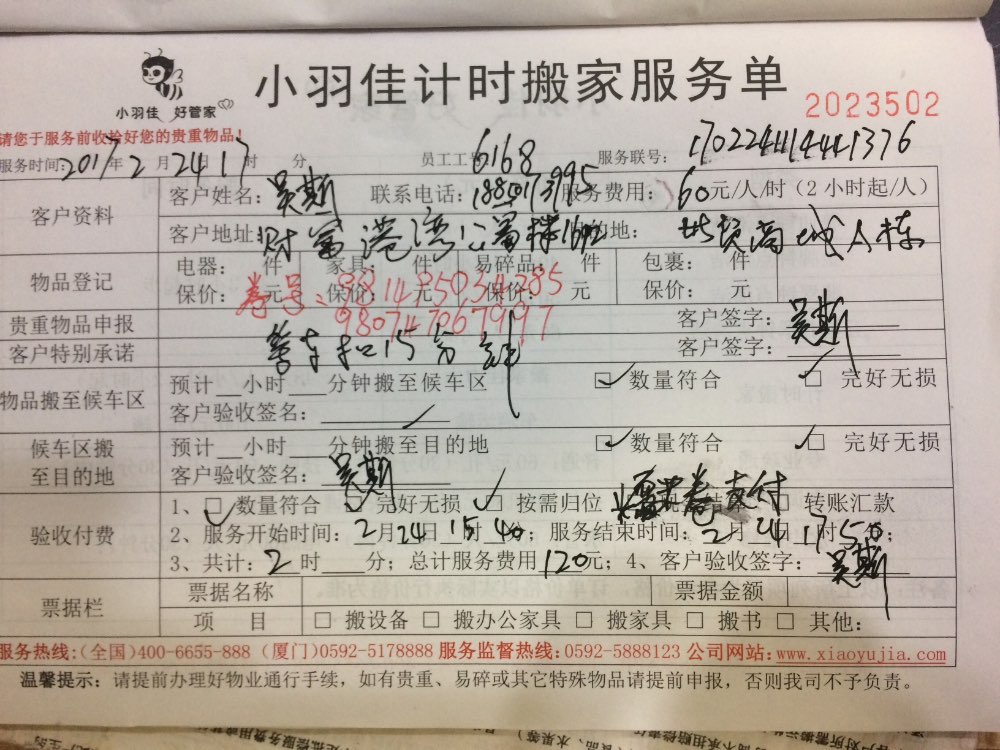 小羽佳 好管家
小羽佳计时搬家服务单
2023502
请您于服务前收拾好您的贵重物品！
服务时间：2017年2月24日17时 分 员工工号：6168 服务联号：
客户资料
客户姓名：吴斯 联系电话： 服务费用：60元/人/时（2小时起/人）
客户地址：财富港湾公寓
物品登记
电器： 件 家具： 件 易碎品： 件 包裹： 件
保价： 元 保价： 元 保价： 元 保价： 元
卷号：981485034285
980747067997
贵重物品申报 客户签字：吴斯
客户特别承诺 等车扣15分钟 客户签字：
物品搬至候车区
预计 小时 分钟搬至候车区 ☑ 数量符合 ☑ 完好无损
客户验收签名：
候车区搬至目的地
预计 小时 分钟搬至目的地 ☑ 数量符合 ☑ 完好无损
客户验收签名：吴斯
验收付费
1、☑ 数量符合 □ 完好无损 ☑ 按需归位 卷支付 □ 转账汇款
2、服务开始时间：2月24日15时40；服务结束时间：2月24日17 50；
3、共计：2时 分；总计服务费用120元；4、客户验收签字：吴斯
票据栏
票据名称 票据金额
项 目 □ 搬设备 □ 搬办公家具 □ 搬家具 □ 搬书 □ 其他：
服务热线：（全国）400-6655-888（厦门）0592-5178888 服务监督热线：0592-5888123 公司网站：www.xiaoyujia.com
温馨提示：请提前办理好物业通行手续，如有贵重、易碎或其它特殊物品请提前申报，否则我司不予负责。